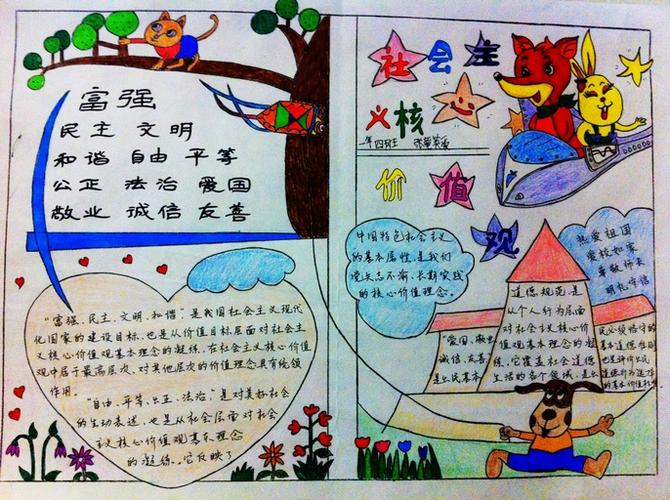 富强
民主 文明
和谐 自由 平等
公正 法治 爱国
敬业 诚信 友善
"富强、民主、文明、和谐"是我国社会主义现代
化国家的建设目标,也是从价值目标层面对社会主
义核心价值观基本理念的凝练,在社会主义核心价值
观中居于最高层次,对其他层次的价值理念具有统领
作用。
"自由、平等、公正、法治。"是对美好社会
的生动表述,也是从社会层面对社会
主义核心价值观基本理念
的凝练。它反映了
社会主
义核
价值
观
中国特色社会主义
的基本属性,是我们
党矢志不渝、长期实践
的核心价值理念。
热爱祖国
爱校如家
尊敬师长
明礼守信
"爱国、敬业
诚信、友善
是公民基本
道德规范,是
从个人行为层面
对社会主义核心价
值观基本理念的凝
练。它覆盖社会道德
生活的各个领域,是公
民必须恪守的
基本道德准则
也是评价公民
道德行为选择
的基本价值标